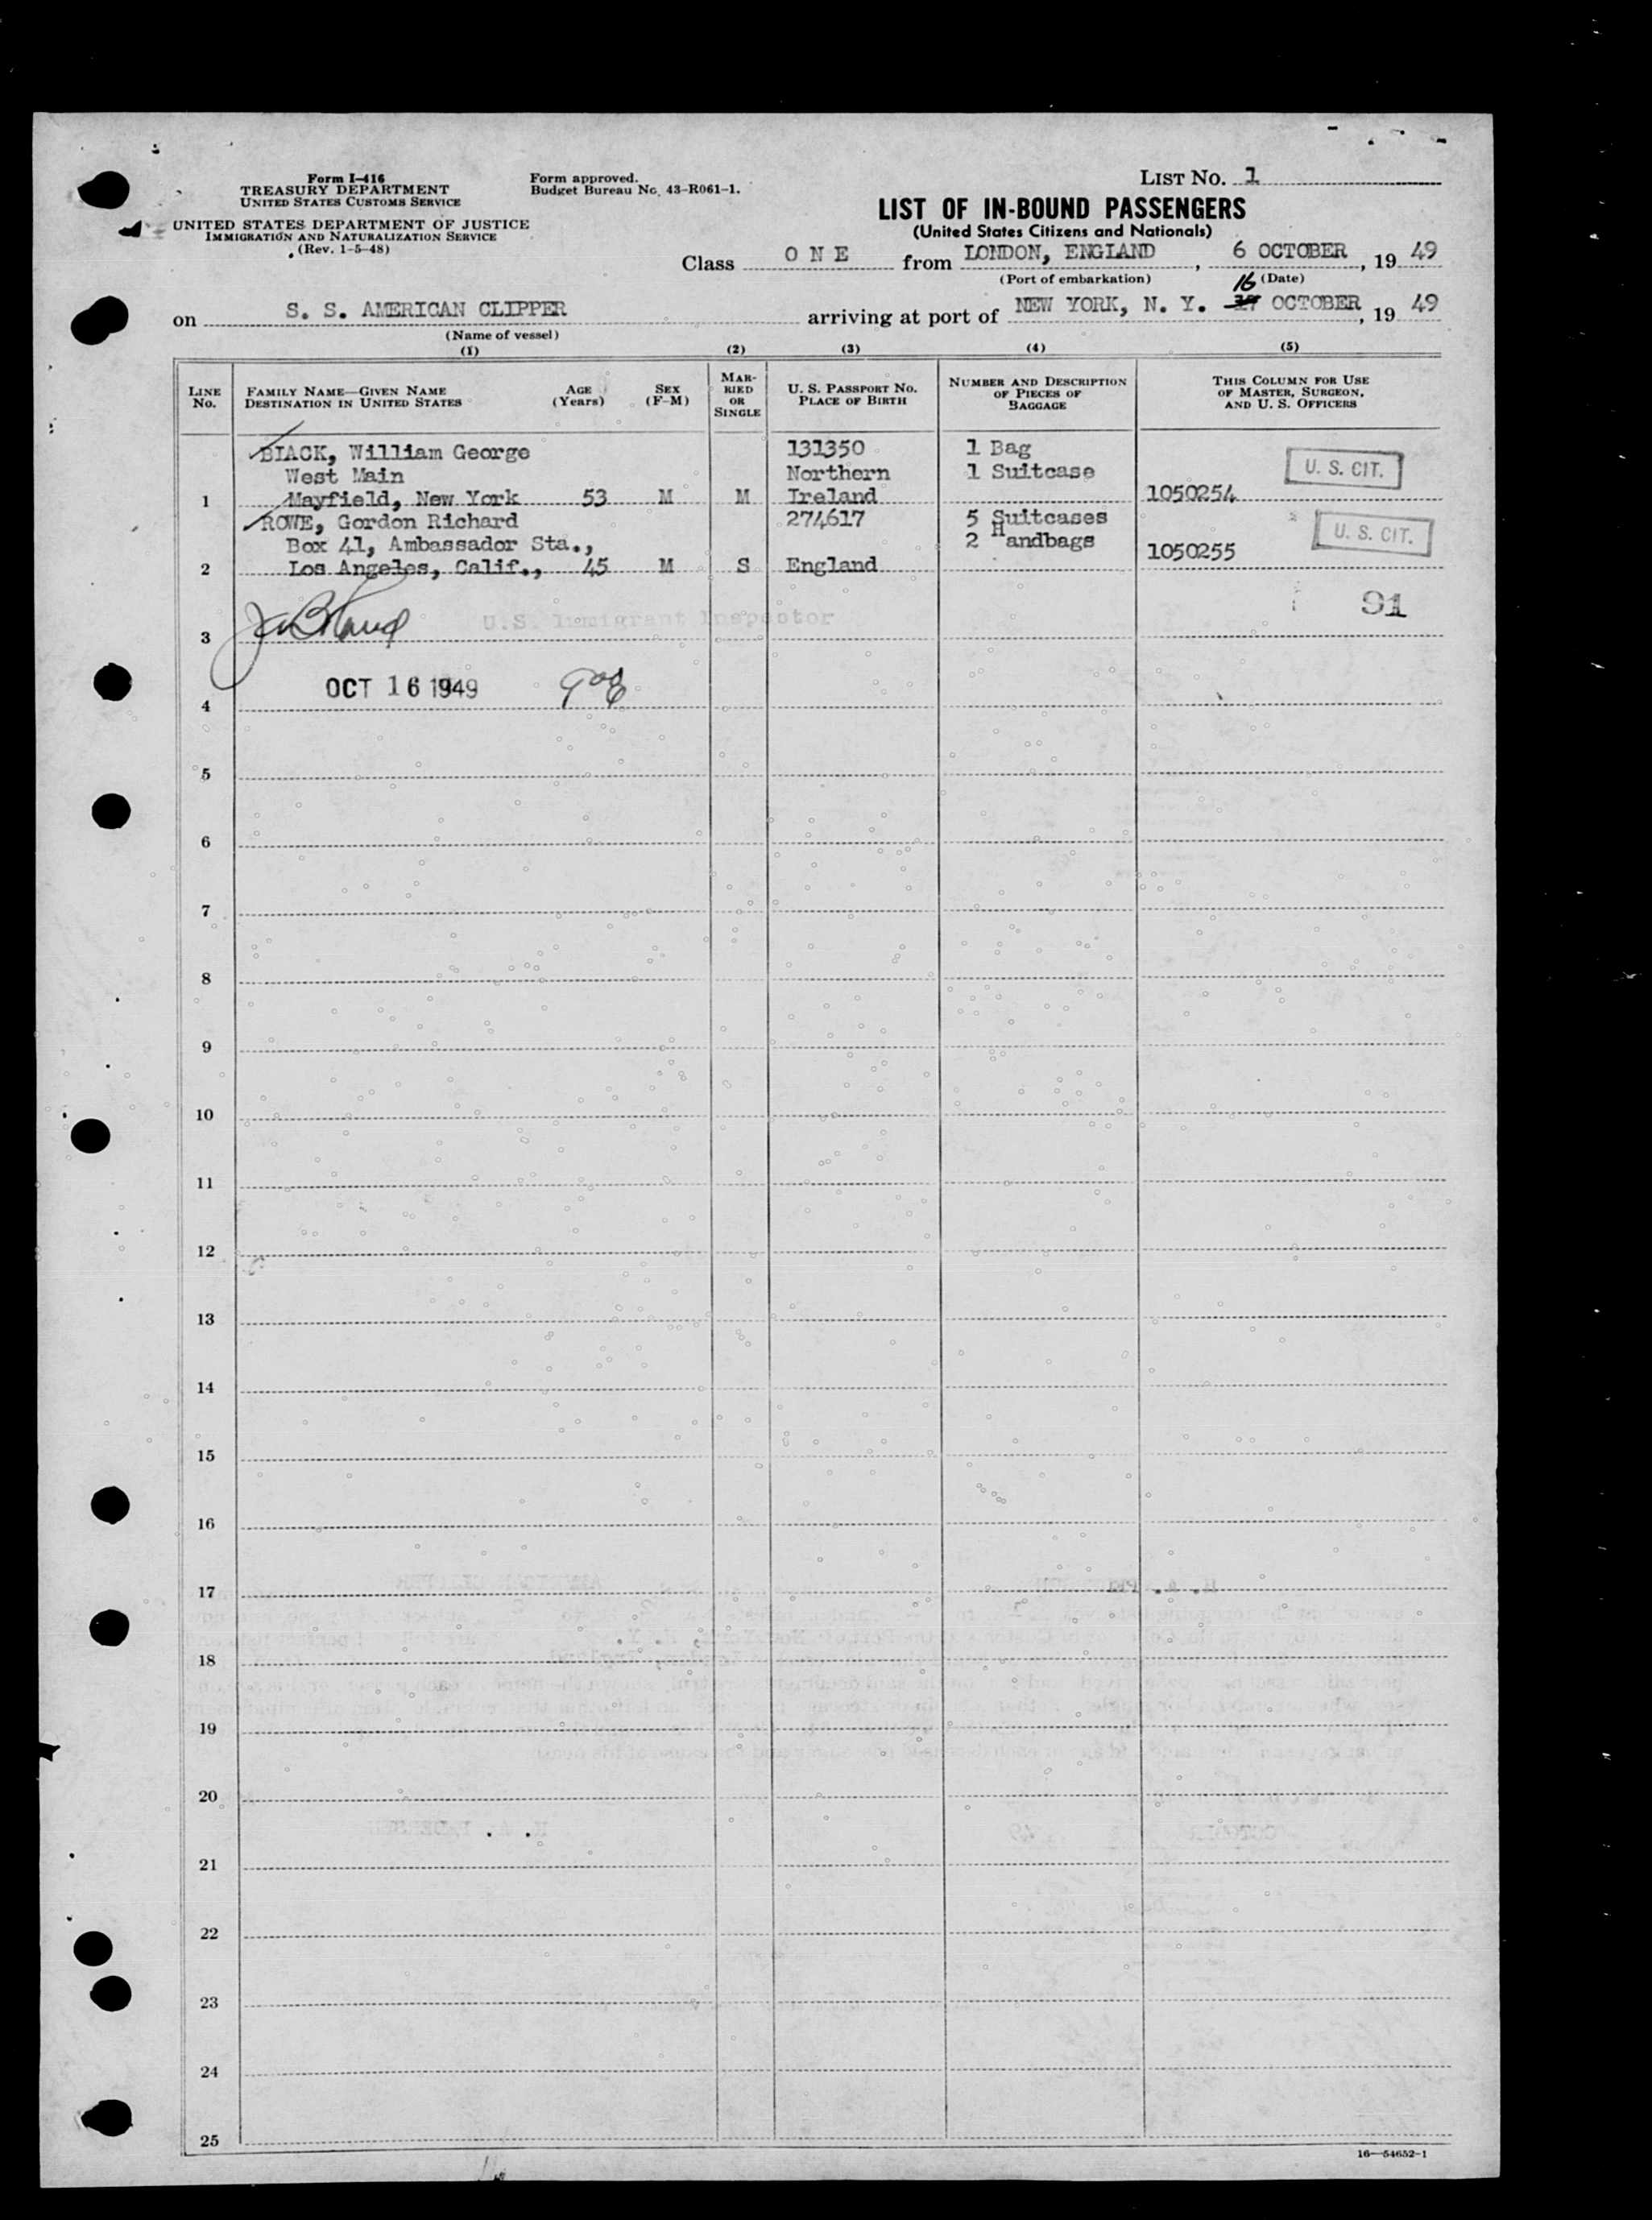 Form I-416
TREASURY DEPARTMENT
UNITED STATES CUSTOMS SERVICE
UNITED STATES DEPARTMENT OF JUSTICE
IMMIGRATION AND NATURALIZATION SERVICE
(Rev. 1-5-48)
Form approved.
Budget Bureau No. 43-R061-1.
LIST NO. 1
LIST OF IN-BOUND PASSENGERS
(United States Citizens and Nationals)
Class O N E from LONDON, ENGLAND, 6 OCTOBER, 19 49
(Port of embarkation) (Date)
16
on S. S. AMERICAN CLIPPER arriving at port of NEW YORK, N. Y. OCTOBER, 19 49
(Name of vessel)
(1) (2) (3) (4) (5)
LINE No. FAMILY NAME—GIVEN NAME DESTINATION IN UNITED STATES AGE (Years) SEX (F-M) MARRIED OR SINGLE U. S. PASSPORT NO. PLACE OF BIRTH NUMBER AND DESCRIPTION OF PIECES OF BAGGAGE THIS COLUMN FOR USE OF MASTER, SURGEON, AND U. S. OFFICERS
BLACK, William George 131350 1 Bag
West Main Northern 1 Suitcase U. S. CIT.
1 Mayfield, New York 53 M M Ireland 1050254
ROWE, Gordon Richard 274617 5 Suitcases
Box 41, Ambassador Sta., 2 Handbags 1050255 U. S. CIT.
2 Los Angeles, Calif., 45 M S England
91
U.S. Immigrant Inspector
3
OCT 16 1949
4
5
6
7
8
9
10
11
12
13
14
15
16
17
18
19
20
21
22
23
24
25
16—54652-1